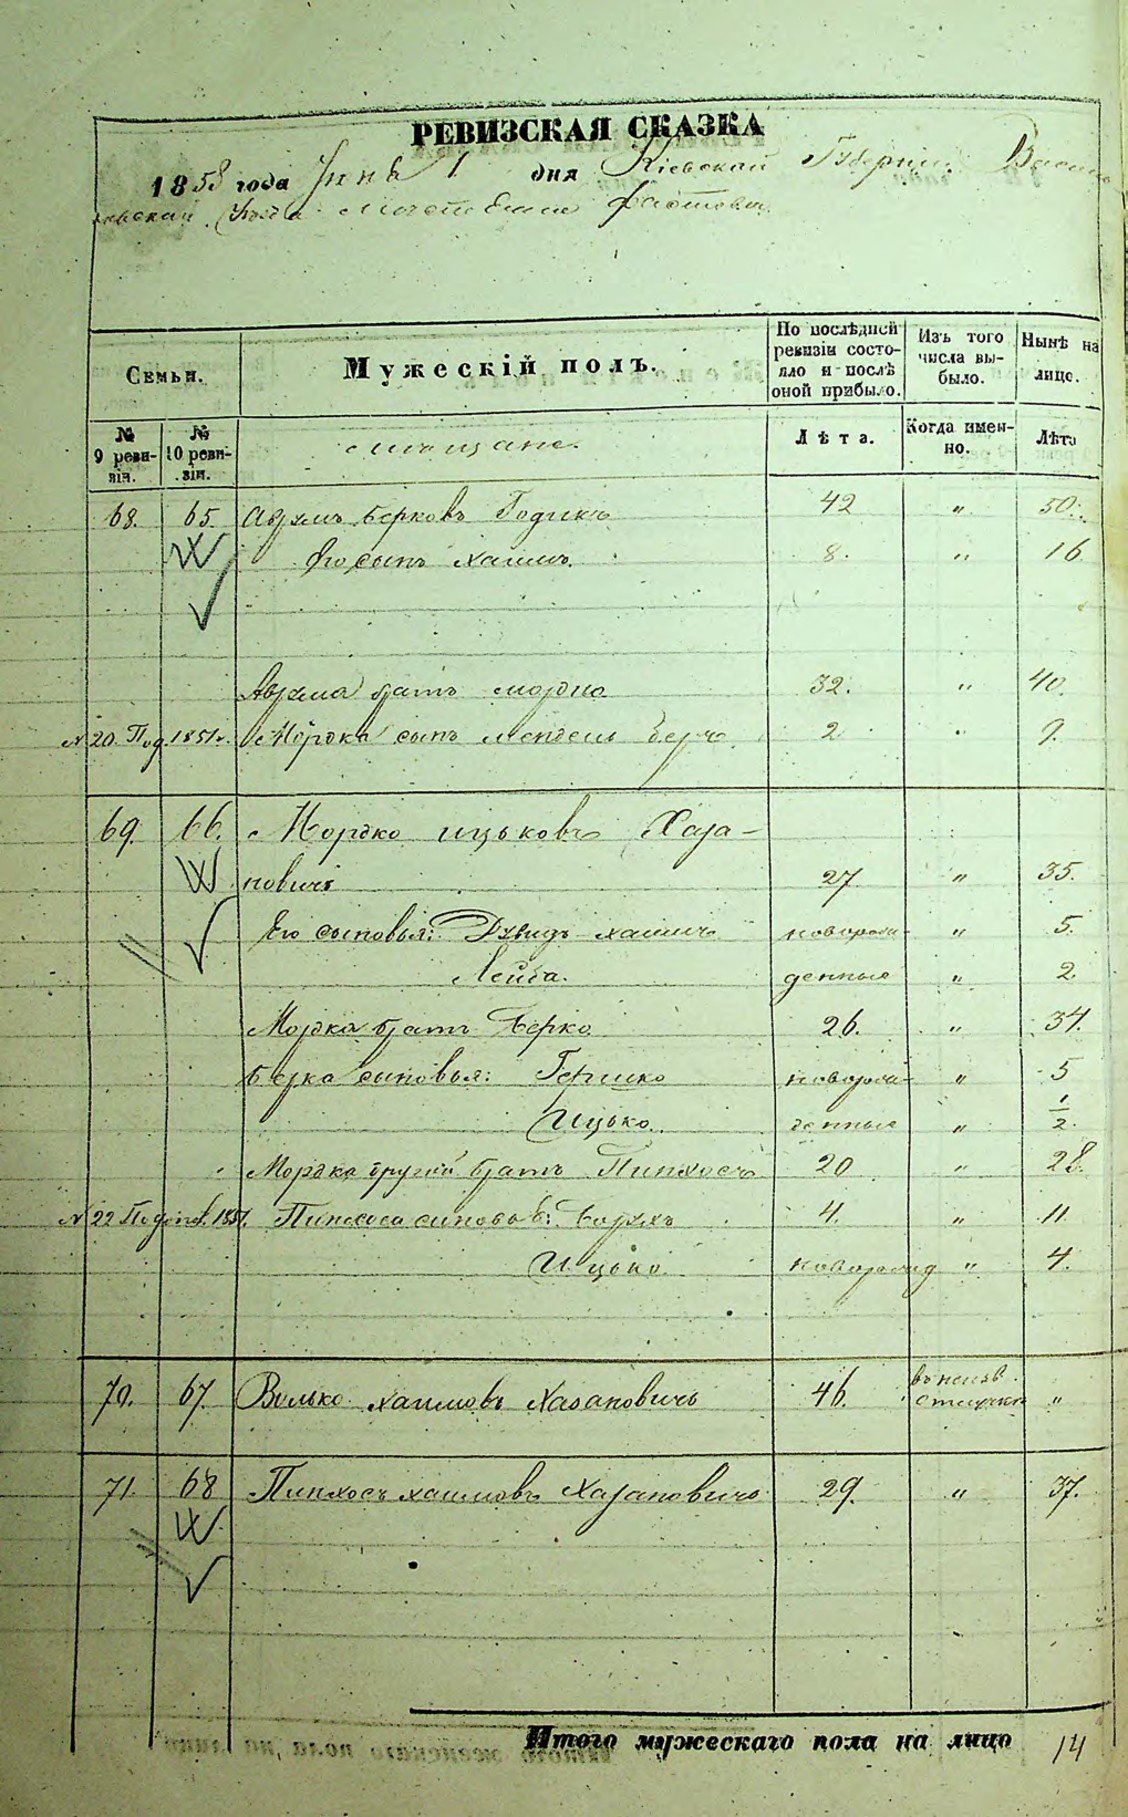 РЕВИЗСКАЯ СКАЗКА
1858 года Іюня 1 дня Кіевской Губерніи Василь
ковскаго Уѣзда Мѣстечка Фастова
Семьи.
Мужескій полъ.
По послѣдней ревизіи состояло и послѣ оной прибыло.
Изъ того числа выбыло.
Нынѣ на лицо.
№ 9 ревизіи.
№ 10 ревизіи.
Мѣщане.
Лѣта.
Когда именно.
Лѣта
68. 65. Аврумъ Берковъ Годикъ 42 " 50.
Его сынъ Хаимъ. 8. " 16
Аврума братъ Мордко 32. " 40.
№ 20. Под. 1851. Мордка сынъ Мендель Беръ 2 " 9.
69. 66. Мордко Ицьковъ Хаза-
новичъ 27 " 35.
Его сыновья: Дувидъ Хаимъ новорож- " 5.
Лейба. денные " 2.
Мордка братъ Берко 26. " 34.
Берка сыновья: Гершко новорож- " 5
Ицько. денные " 1/2.
Мордка другий братъ Пинхосъ 20 " 28.
№ 22 1851. Пинхоса сыновья: Борухъ 4. " 11.
Ицько. новорожд " 4.
70. 67. Волько Хаимовъ Хазановичъ 46. въ неизв отлучкѣ "
71. 68 Пинхосъ Хаимовъ Хазановичъ 29. " 37.
Итого мужескаго пола на лицо 14